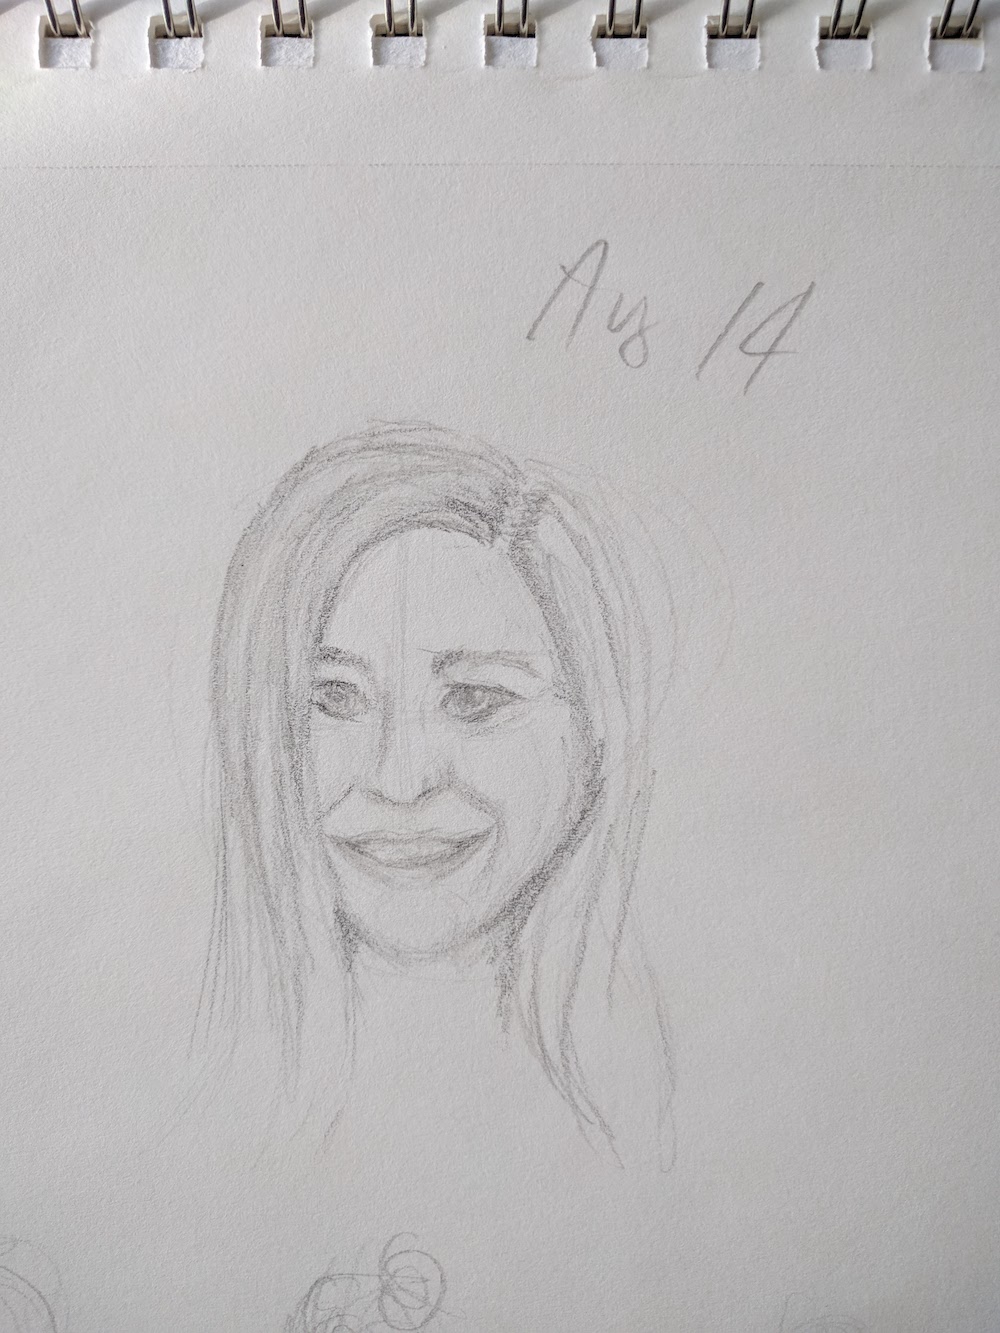 Aug 14